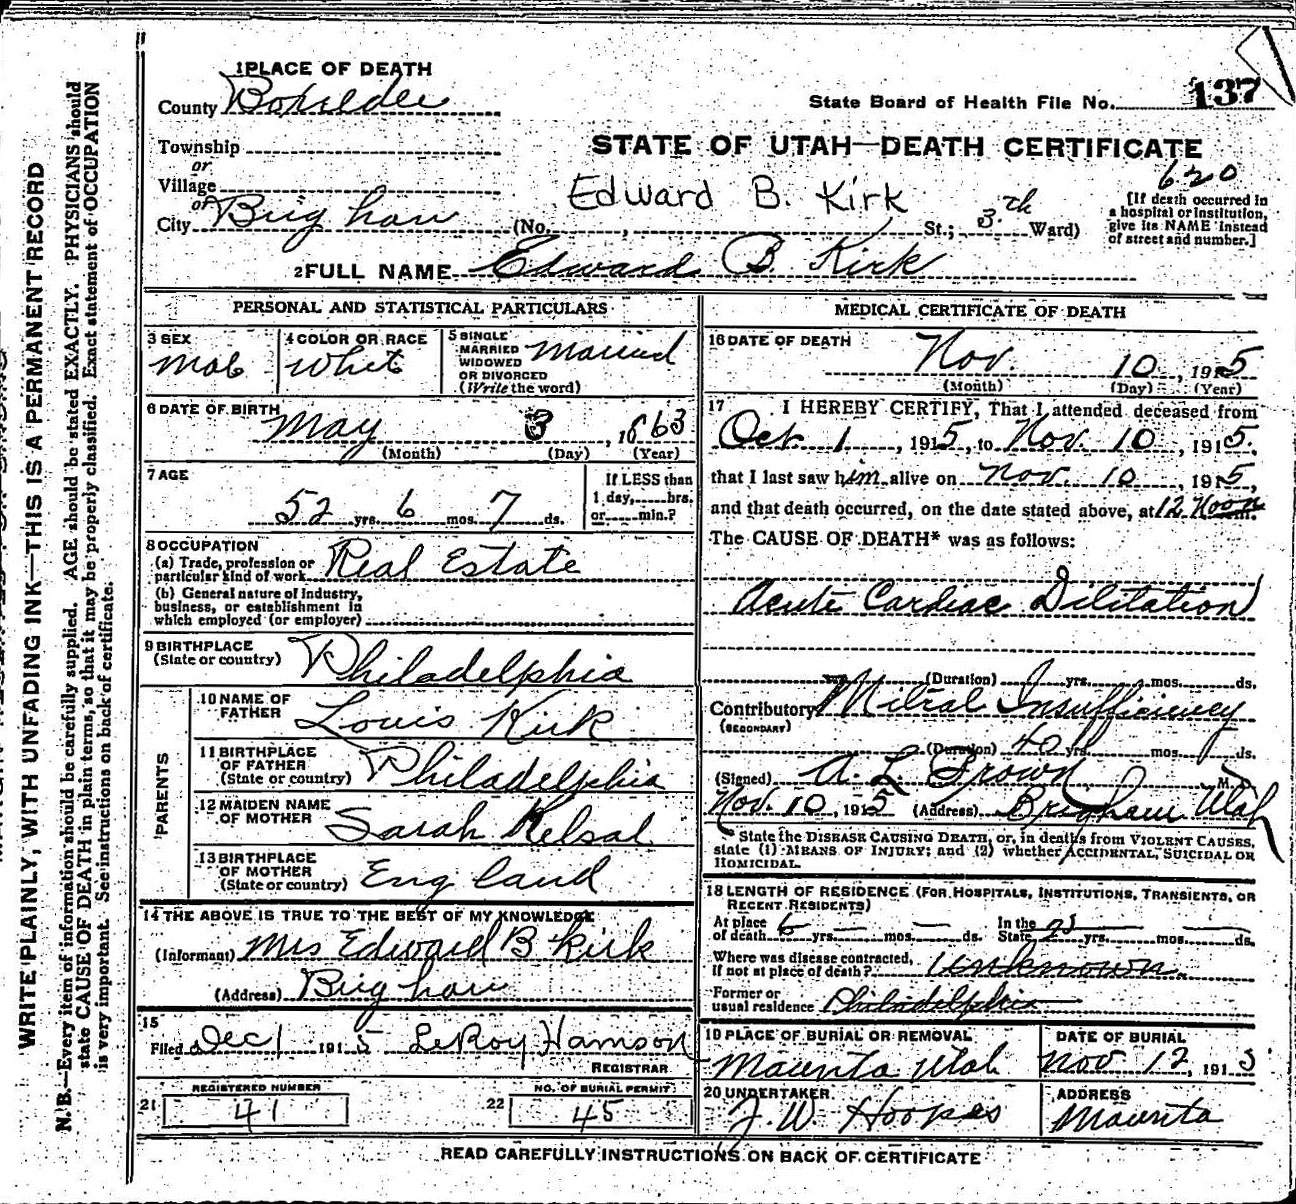 1 PLACE OF DEATH
County Boxelder
State Board of Health File No. 137
STATE OF UTAH—DEATH CERTIFICATE
Township
or
Village
or
City Brigham (No. , St.; 3th Ward)
Edward B. Kirk
620
[If death occurred in
a hospital or institution,
give its NAME instead
of street and number.]
2 FULL NAME Edward B. Kirk
PERSONAL AND STATISTICAL PARTICULARS
3 SEX
Male
4 COLOR OR RACE
White
5 SINGLE
MARRIED
WIDOWED
OR DIVORCED
(Write the word)
Married
6 DATE OF BIRTH
May 3, 1863
(Month) (Day) (Year)
7 AGE
52 yrs. 6 mos. 7 ds.
If LESS than
1 day, hrs.
or min.?
8 OCCUPATION
(a) Trade, profession or
particular kind of work Real Estate
(b) General nature of industry,
business, or establishment in
which employed (or employer)
9 BIRTHPLACE
(State or country) Philadelphia
PARENTS
10 NAME OF
FATHER Louis Kirk
11 BIRTHPLACE
OF FATHER
(State or country) Philadelphia
12 MAIDEN NAME
OF MOTHER Sarah Kelsal
13 BIRTHPLACE
OF MOTHER
(State or country) England
14 THE ABOVE IS TRUE TO THE BEST OF MY KNOWLEDGE
(Informant) Mrs Edward B Kirk
(Address) Brigham
15
Filed Dec 1 1915 LeRoy Hamson
REGISTRAR
REGISTERED NUMBER
21 41
NO. OF BURIAL PERMIT
22 45
MEDICAL CERTIFICATE OF DEATH
16 DATE OF DEATH
Nov. 10, 1915
(Month) (Day) (Year)
17 I HEREBY CERTIFY, That I attended deceased from
Oct. 1, 1915, to Nov. 10, 1915.
that I last saw him alive on Nov. 10, 1915,
and that death occurred, on the date stated above, at 12 Noon m.
The CAUSE OF DEATH* was as follows:
Acute Cardiac Dilitation
(Duration) yrs. mos. ds.
Contributory Mitral Insufficiency
(SECONDARY)
(Duration) 40 yrs. mos. ds.
(Signed) A. L. Brown M.
Nov. 10, 1915 (Address) Brigham Utah
*State the DISEASE CAUSING DEATH, or, in deaths from VIOLENT CAUSES,
state (1) MEANS OF INJURY; and (2) whether ACCIDENTAL, SUICIDAL OR
HOMICIDAL.
18 LENGTH OF RESIDENCE (FOR HOSPITALS, INSTITUTIONS, TRANSIENTS, OR
RECENT RESIDENTS)
At place
of death 6 yrs. mos. ds. In the
State yrs. mos. ds.
Where was disease contracted,
if not at place of death? Unknown.
Former or
usual residence Philadelphia
19 PLACE OF BURIAL OR REMOVAL
Utah
DATE OF BURIAL
Nov 12, 1915
20 UNDERTAKER
J. W. Hoopes
ADDRESS
READ CAREFULLY INSTRUCTIONS ON BACK OF CERTIFICATE
WRITE PLAINLY, WITH UNFADING INK—THIS IS A PERMANENT RECORD
N. B.—Every item of information should be carefully supplied. AGE should be stated EXACTLY. PHYSICIANS should
state CAUSE OF DEATH in plain terms, so that it may be properly classified. Exact statement of OCCUPATION
is very important. See instructions on back of certificate.